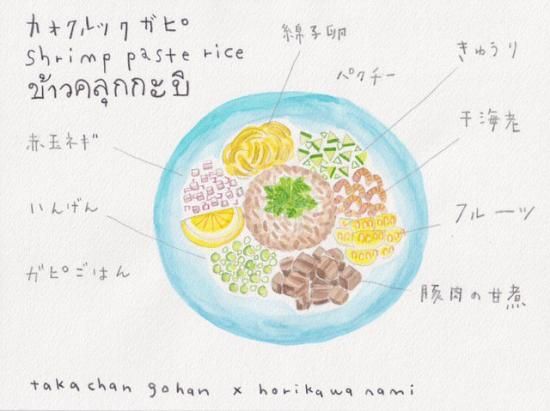 カオクルックガピ
shrimp paste rice
ข้าวคลุกกะปิ
綿子卵
きゅうり
パクチー
干海老
赤玉ネギ
いんげん
フルーツ
ガピごはん
豚肉の甘煮
takachan gohan x horikawa nami